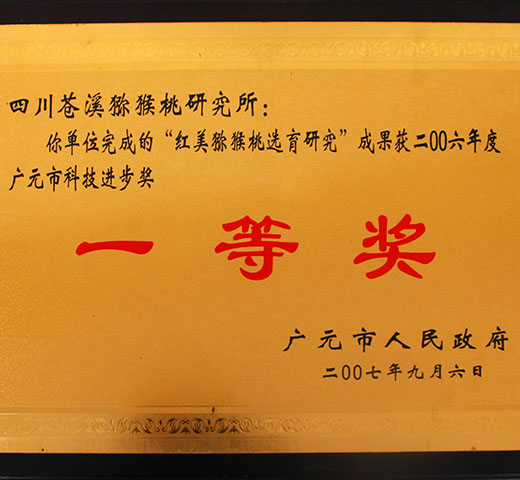 四川苍溪猕猴桃研究所：
你单位完成的“红美猕猴桃选育研究”成果获二00六年度
广元市科技进步奖
一等奖
广元市人民政府
二00七年九月六日